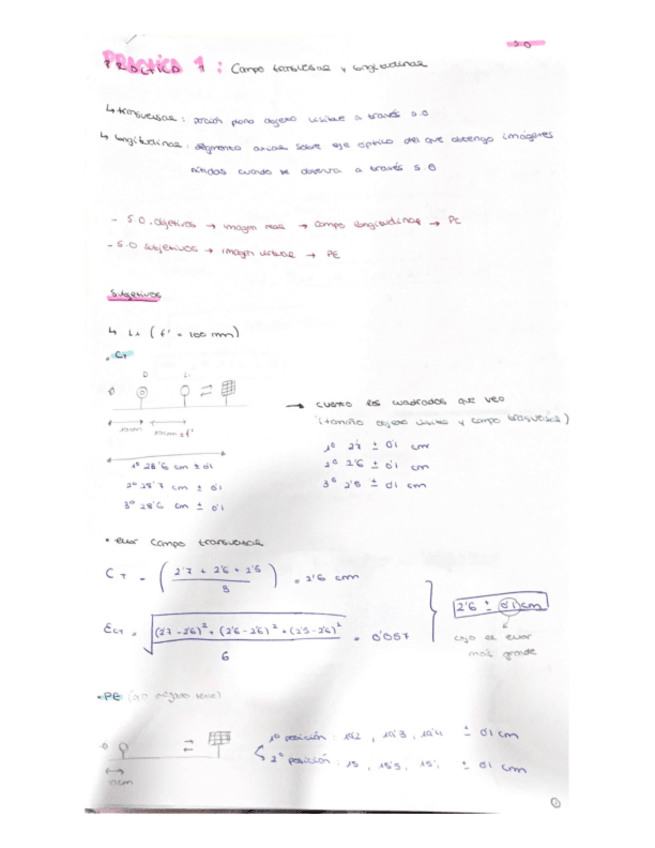 S.O
PRÁCTICA 1: Campo transversal y longitudinal
↳ transversal: porción plano objeto visible a través S.O
↳ longitudinal: segmento axial sobre eje óptico del que obtengo imágenes
nítidas cuando se observa a través S.O
- S.O. objetivos → imagen real → campo longitudinal → PC
- S.O subjetivos → imagen virtual → PE
Subjetivos
↳ L1 (f' = 100 mm)
• CT
D L1
10cm 10cm ± f'
→ cuento los cuadrados que veo
(tamaño objeto visible y campo trasversal)
1º 2'7 ± 0'1 cm
2º 2'6 ± 0'1 cm
3º 2'5 ± 0'1 cm
1º 28'6 cm ± 0'1
2º 28'7 cm ± 0'1
3º 28'6 cm ± 0'1
• error campo transversal
CT = (2'7 + 2'6 + 2'5 / 3) = 2'6 cm
ECT = √((2'7 - 2'6)² + (2'6 - 2'6)² + (2'5 - 2'6)² / 6) = 0'057
2'6 ± 0'1 cm
cojo el error
más grande
• PE
10cm
1º posición: 19'3, 19'4 ± 0'1 cm
2º posición: 15, 15'5, 15'1 ± 0'1 cm
1